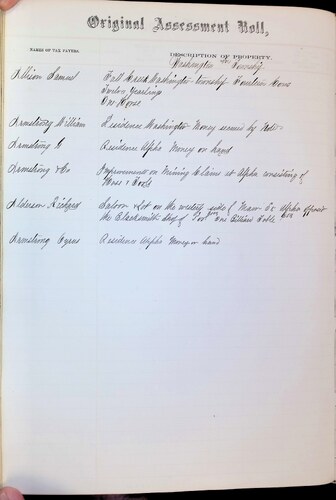 Original Assessment Roll,
NAMES OF TAX PAYERS.
DESCRIPTION OF PROPERTY.
Washington Township
Allison Samuel
Washington township Fourteen Cows
Twelve Yearlings
One Horse
Armstrong William
Residence Washington Money secured by Note
Armstrong
Residence Alpha Money on hand
Armstrong & Co
Improvements on Mining Claims at Alpha consisting of
Hose & Tools
Alderson Richard
Saloon & Lot on the westerly side of Main St Alpha opposite
the Blacksmith Shop of One Billiard Table
Armstrong Cyrus
Residence Alpha Money on hand